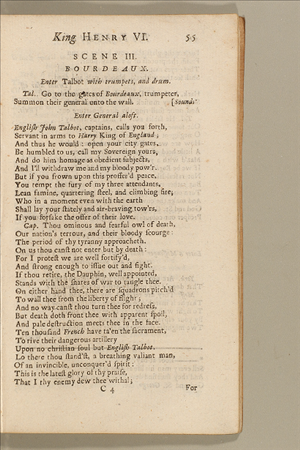 King HENRY VI. 55
SCENE III.
BOURDEAUX.
Enter Talbot with trumpets, and drum.
Tal. Go to the gates of Bourdeaux, trumpeter,
Summon their general onto the wall. [sounds
Enter General aloft.
English John Talbot, captains, calls you forth,
Servant in arms to Harry King of England;
And thus he would: open your city gates,
Be humbled to us, call my Sovereign yours,
And do him homage as obedient subjects,
And I'll withdraw me and my bloody pow'r.
But if you frown upon this proffer'd peace,
You tempt the fury of my three attendants,
Lean famine, quartering steel, and climbing fire;
Who in a moment even with the earth
Shall lay your stately and air-braving tow'rs,
If you forsake the offer of their love.
Cap. Thou ominous and fearful owl of death,
Our nation's terrour, and their bloody scourge
The period of thy tyranny approacheth.
On us thou canst not enter but by death:
For I protest we are well fortify'd,
And strong enough to issue out and fight.
If thou retire, the Dauphin, well appointed,
Stands with the snares of war to tangle thee.
On either hand thee, there are squadrons pitch'd
To wall thee from the liberty of flight;
And no way canst thou turn thee for redress,
But death doth front thee with apparent spoil,
And pale destruction meets thee in the face.
Ten thousand French have ta'en the sacrament,
To rive their dangerous artillery
Upon no christian soul but English Talbot.
Lo there thou stand'st, a breathing valiant man,
Of an invincible, unconquer'd spirit:
This is the latest glory of thy praise,
That I thy enemy dew thee withal;
C 4 For